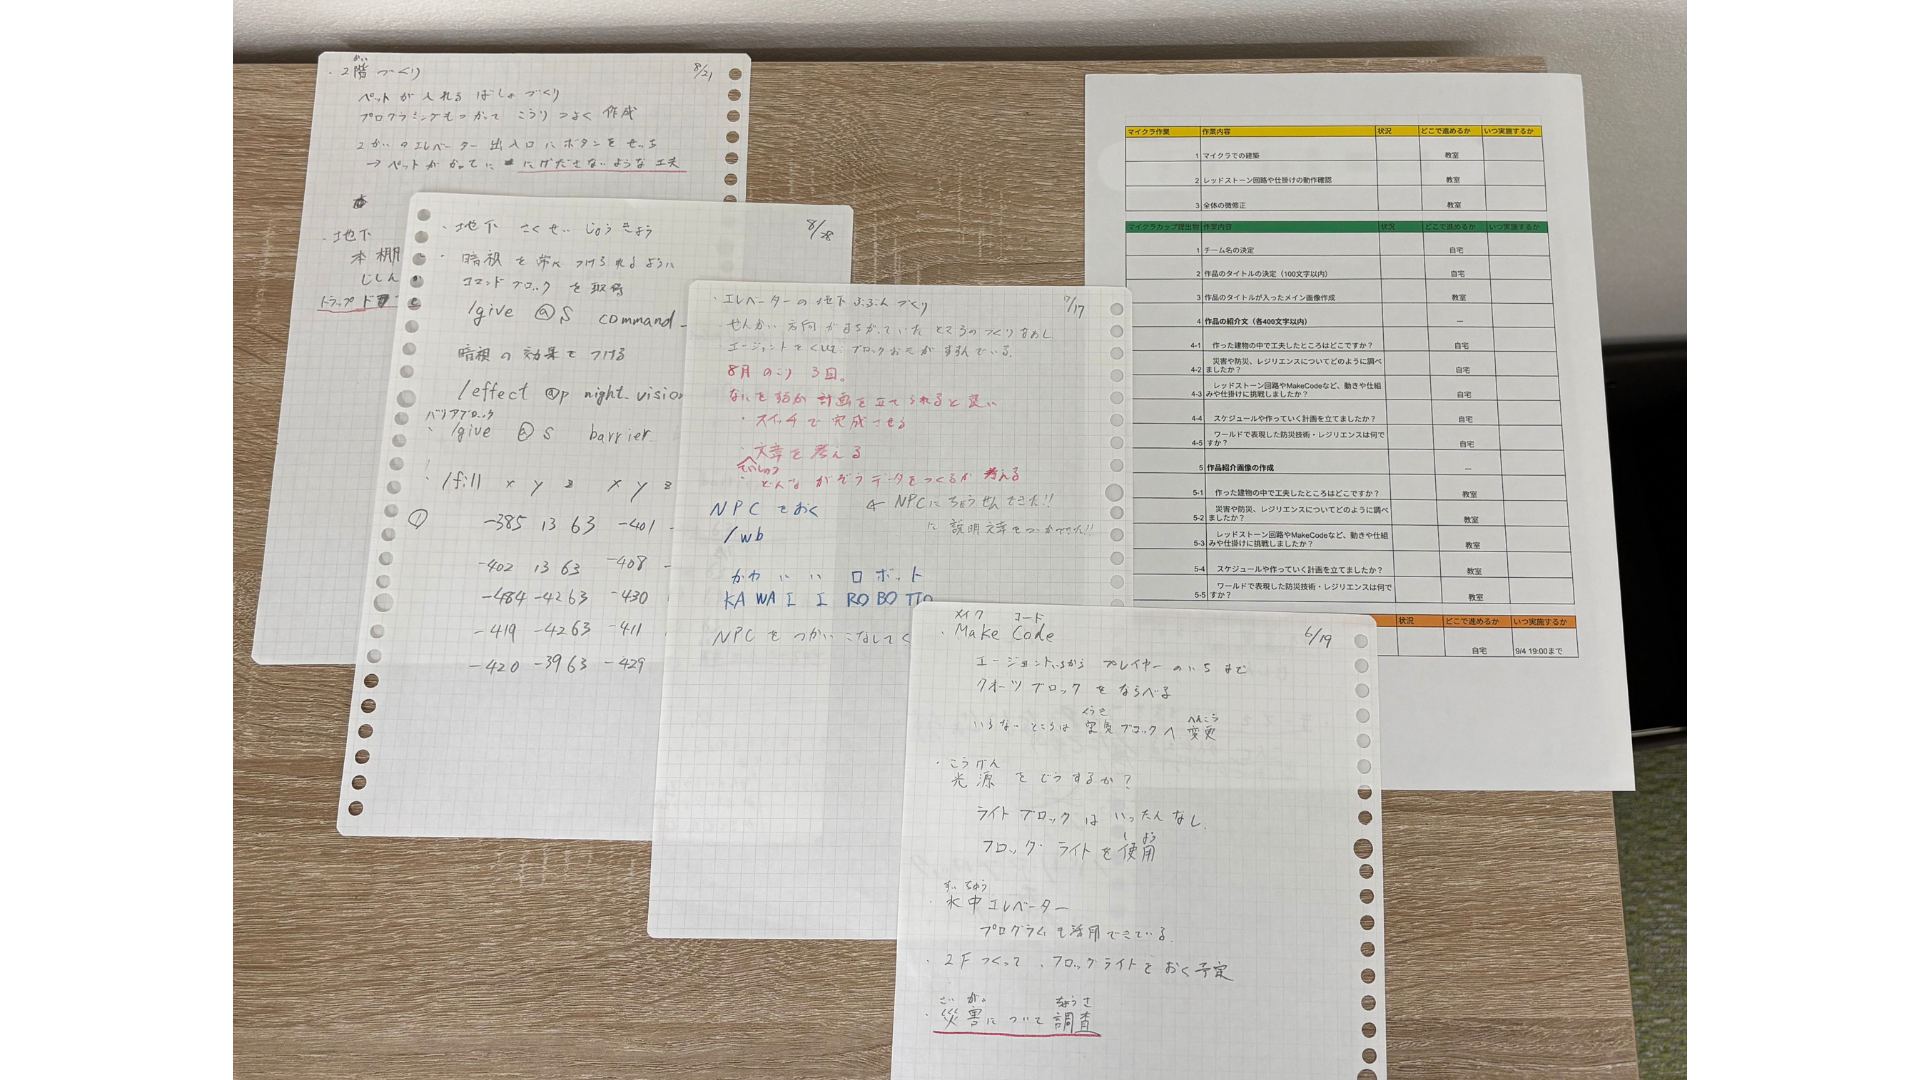 8/21
かい
・2階 づくり
ペットが入れる ばしょ づくり
プログラミングもつかって こうりつよく 作成
2かいのエレベーター 出入口にボタンをせっち
→ ペットがかってに にげださないような工夫
・地下
本棚
じしん
トラップド
8/28
・地下 さくせい じょうきょう
・暗視を常につけられるように
コマンドブロックを取得
/give @S command_
暗視の効果をつける
/effect @p night_vision
バリアブロック
・/give @S barrier
・/fill x y z x y z
① -385 13 63 -401 -
-402 13 63 -408 -
-484 -42 63 -430
-419 -42 63 -411
-420 -39 63 -429
/17
・エレベーターの地下ぶぶんづくり
・せんかい方向がまちがっていたところのつくりなおし
エージェントをくしして ブロックおきがすすんでいる。
8月 のこり 3回。
なにをするか 計画を立てられると良い
・スイッチで 完成させる
・文章を考える
どんな がぞうデータをつくるか 考える
NPC をおく ← NPCにちょうせんできた!!
に 説明文章をつかできた!!
/wb
かわいい ロボット
KAWAII ROBOTTO
NPC をつかいこなしてく
メイク コード
・Make Code 6/19
エージェントいちから プレイヤーのいちまで
クオーツブロックをならべる
くうき へんこう
いらないところは空気ブロックへ変更
こうげん
・光源をどうするか?
ライトブロックはいったんなし。
しよう
フロッグライトを使用
すいちゅう
・水中エレベーター
プログラムを活用できている。
・2Fつくって、フロッグライトをおく予定
さいがい ちょうさ
・災害について調査
マイクラ作業 作業内容 状況 どこで進めるか いつ実施するか
1 マイクラでの建築 教室
2 レッドストーン回路や仕掛けの動作確認 教室
3 全体の微修正 教室
マイクラカップ提出物 作業内容 状況 どこで進めるか いつ実施するか
1 チーム名の決定 自宅
2 作品のタイトルの決定（100文字以内） 自宅
3 作品のタイトルが入ったメイン画像作成 教室
4 作品の紹介文（各400文字以内） ―
4-1 作った建物の中で工夫したところはどこですか？ 自宅
4-2 災害や防災、レジリエンスについてどのように調べましたか？ 自宅
4-3 レッドストーン回路やMakeCodeなど、動きや仕組みや仕掛けに挑戦しましたか？ 自宅
4-4 スケジュールや作っていく計画を立てましたか？ 自宅
4-5 ワールドで表現した防災技術・レジリエンスは何ですか？ 自宅
5 作品紹介画像の作成 ―
5-1 作った建物の中で工夫したところはどこですか？ 教室
5-2 災害や防災、レジリエンスについてどのように調べましたか？ 教室
5-3 レッドストーン回路やMakeCodeなど、動きや仕組みや仕掛けに挑戦しましたか？ 教室
5-4 スケジュールや作っていく計画を立てましたか？ 教室
5-5 ワールドで表現した防災技術・レジリエンスは何ですか？ 教室
状況 どこで進めるか いつ実施するか
自宅 9/4 19:00まで